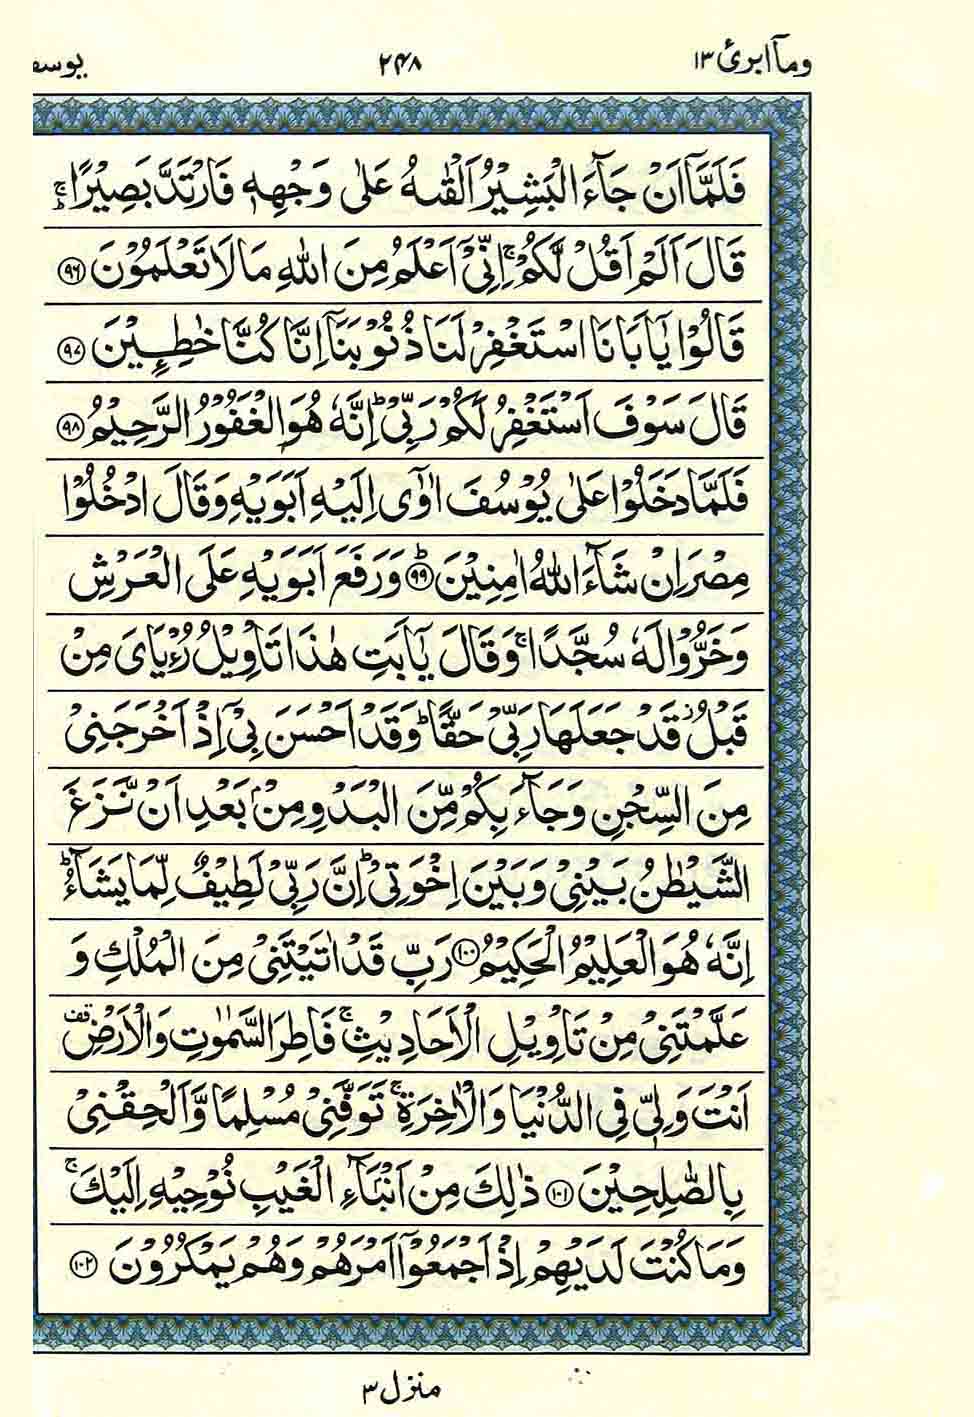 وماۤ ابرئ ۱۳ ۲۴۸ يوسف
فَلَمَّاۤ اَنْ جَآءَ الْبَشِيْرُ اَلْقٰىهُ عَلٰى وَجْهِهٖ فَارْتَدَّ بَصِيْرًا ۚؕ
قَالَ اَلَمْ اَقُلْ لَّكُمْ ۚ اِنِّىْۤ اَعْلَمُ مِنَ اللّٰهِ مَا لَا تَعْلَمُوْنَ ۹۶
قَالُوْا يٰۤاَبَانَا اسْتَغْفِرْ لَنَا ذُنُوْبَنَاۤ اِنَّا كُنَّا خٰطِـِٕيْنَ ۹۷
قَالَ سَوْفَ اَسْتَغْفِرُ لَكُمْ رَبِّىْ ؕ اِنَّهٗ هُوَ الْغَفُوْرُ الرَّحِيْمُ ۹۸
فَلَمَّا دَخَلُوْا عَلٰى يُوْسُفَ اٰوٰۤى اِلَيْهِ اَبَوَيْهِ وَقَالَ ادْخُلُوْا
مِصْرَ اِنْ شَآءَ اللّٰهُ اٰمِنِيْنَ ؕ ۹۹ وَرَفَعَ اَبَوَيْهِ عَلَى الْعَرْشِ
وَخَرُّوْا لَهٗ سُجَّدًا ۚ وَقَالَ يٰۤاَبَتِ هٰذَا تَاْوِيْلُ رُءْيَاىَ مِنْ
قَبْلُ ؗ قَدْ جَعَلَهَا رَبِّىْ حَقًّا ؕ وَقَدْ اَحْسَنَ بِىْۤ اِذْ اَخْرَجَنِىْ
مِنَ السِّجْنِ وَجَآءَ بِكُمْ مِّنَ الْبَدْوِ مِنْۢ بَعْدِ اَنْ نَّزَغَ
الشَّيْطٰنُ بَيْنِىْ وَبَيْنَ اِخْوَتِىْ ؕ اِنَّ رَبِّىْ لَطِيْفٌ لِّمَا يَشَآءُ ؕ
اِنَّهٗ هُوَ الْعَلِيْمُ الْحَكِيْمُ ۱۰۰ رَبِّ قَدْ اٰتَيْتَنِىْ مِنَ الْمُلْكِ وَ
عَلَّمْتَنِىْ مِنْ تَاْوِيْلِ الْاَحَادِيْثِ ۚ فَاطِرَ السَّمٰوٰتِ وَالْاَرْضِ قف
اَنْتَ وَلِىّٖ فِى الدُّنْيَا وَالْاٰخِرَةِ ۚ تَوَفَّنِىْ مُسْلِمًا وَّاَلْحِقْنِىْ
بِالصّٰلِحِيْنَ ۱۰۱ ذٰلِكَ مِنْ اَنْۢبَآءِ الْغَيْبِ نُوْحِيْهِ اِلَيْكَ ۚ
وَمَا كُنْتَ لَدَيْهِمْ اِذْ اَجْمَعُوْۤا اَمْرَهُمْ وَهُمْ يَمْكُرُوْنَ ۱۰۲
منزل ۳